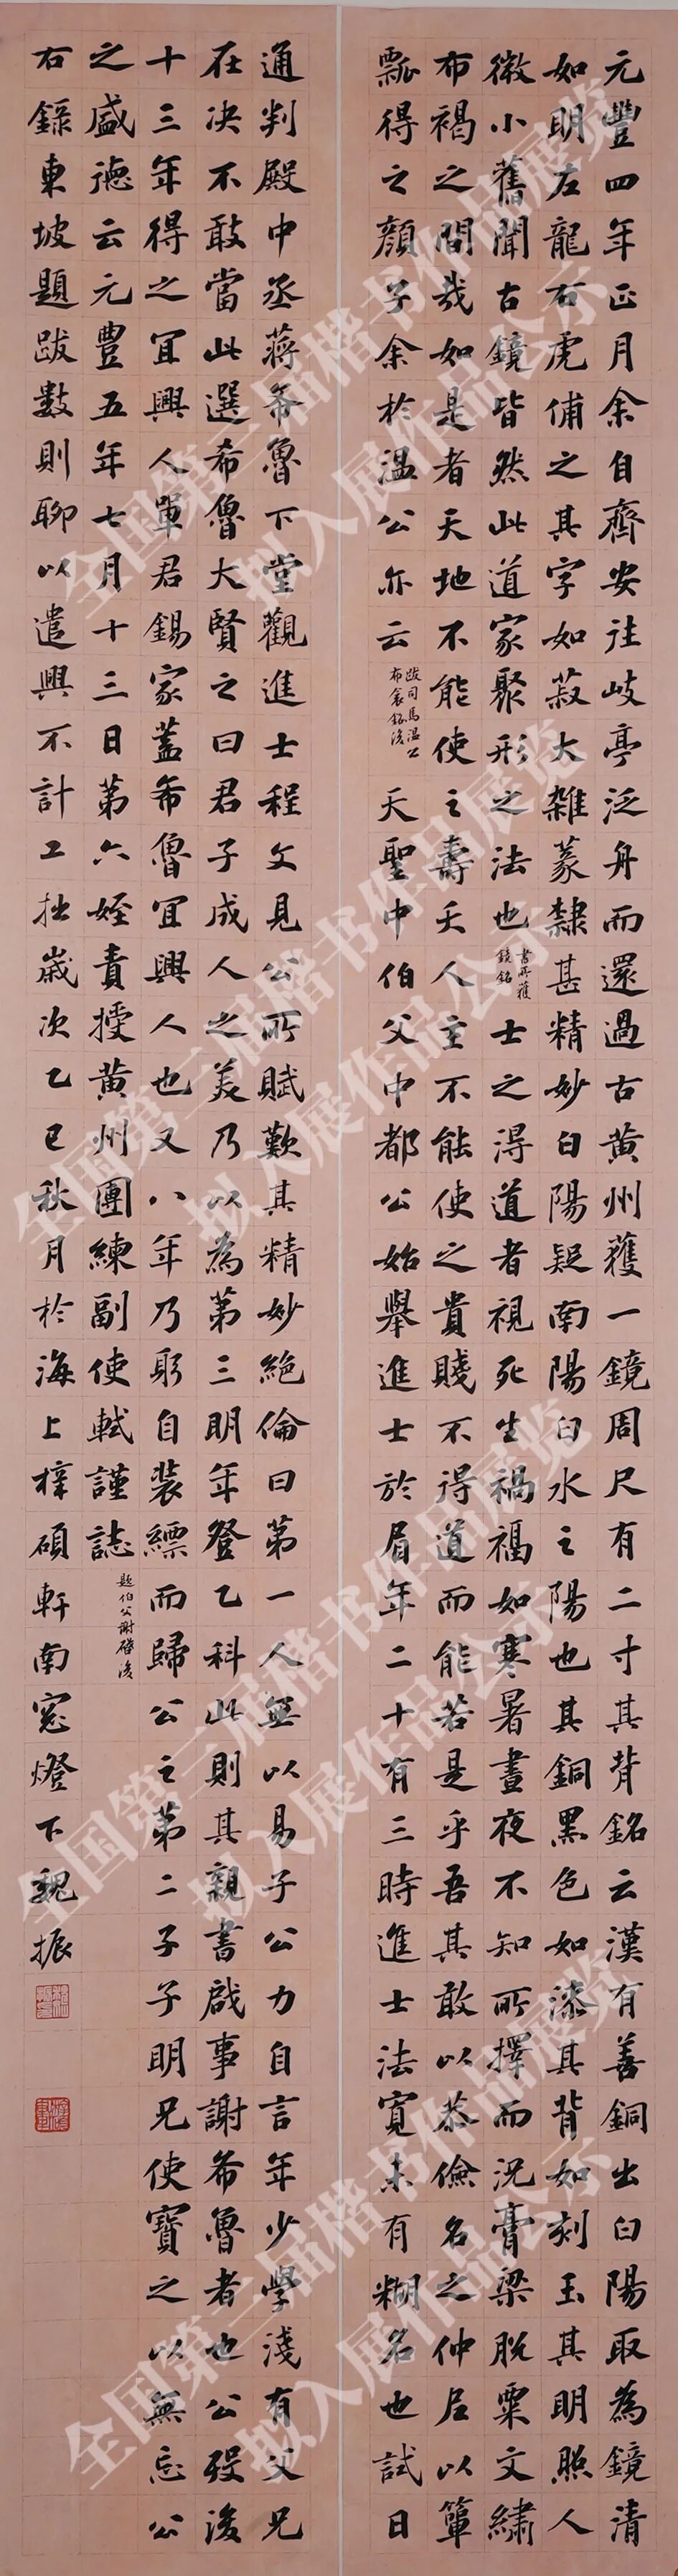 元豐四年正月余自齊安往岐亭泛舟而還過古黄州獲一鏡周尺有二寸其背銘云漢有善銅出白陽取為鏡清
如明左龍右虎俌之其字如菽大雜篆隸甚精妙白陽疑南陽白水之陽也其銅黑色如漆其背如刻玉其明照人
微小舊聞古鏡皆然此道家聚形之法也 書所獲鏡銘 士之得道者視死生禍福如寒暑晝夜不知所擇而況膏粱脫粟文繡
布褐之間哉如是者天地不能使之壽夭人主不能使之貴賤不得道而能若是乎吾其敢以恭儉名之仲尼以簞
瓢得之顏子余於溫公亦云 跋司馬溫公布衾銘後 天聖中伯父中都公始舉進士於眉年二十有三時進士法寬未有糊名也試日
通判殿中丞蔣希魯下堂觀進士程文見公所賦歎其精妙絕倫曰第一人無以易子公力自言年少學淺有父兄
在決不敢當此選希魯大賢之曰君子成人之美乃以為第三明年登乙科此則其親書啟事謝希魯者也公歿後
十三年得之宜興人單君錫家蓋希魯宜興人也又八年乃躬自裝縹而歸公之第二子子明兄使寶之以無忘公
之盛德云元豐五年七月十三日第六姪責授黄州團練副使軾謹誌 題伯父謝啓後
右錄東坡題跋數則聊以遣興不計工拙歲次乙巳秋月於海上梓碩軒南窓燈下魏振
全国第三届楷书作品展览
拟入展作品公示
全国第三届楷书作品展览
拟入展作品公示
全国第三届楷书作品展览
拟入展作品公示
全国第三届楷书作品展览
拟入展作品公示